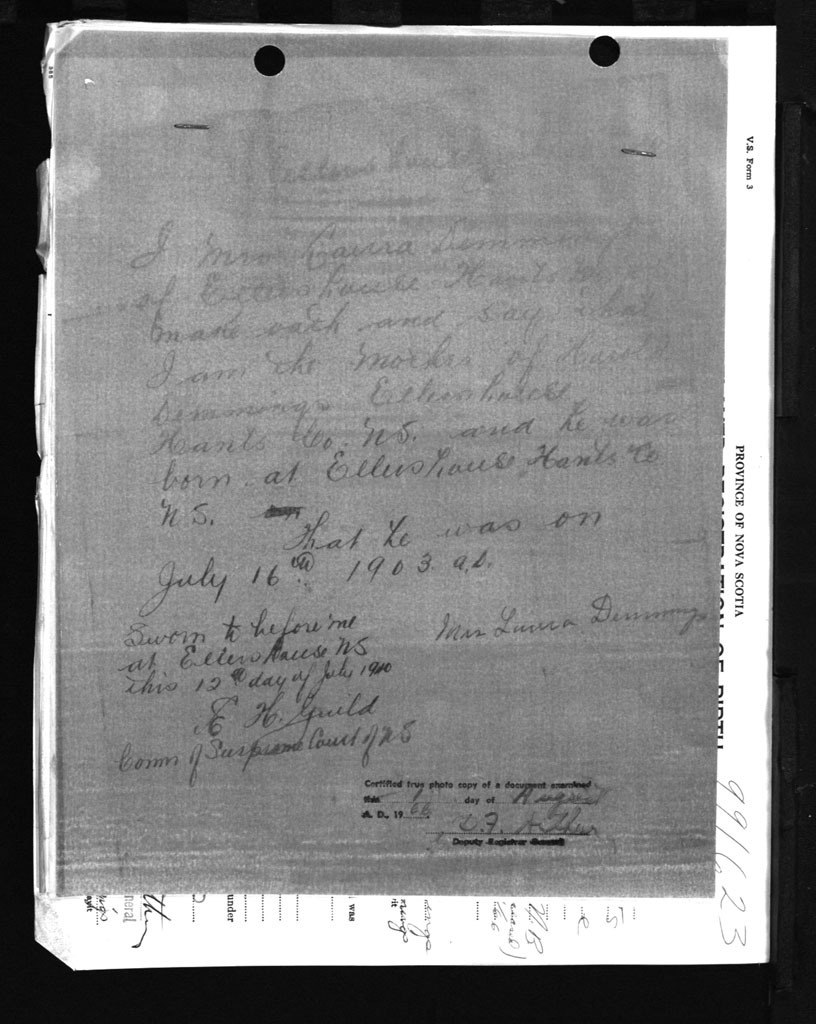 I Mrs Laura Demmings
of Ellershouse Hants
make oath and say that
I am the Mother of Harold
Demmings Ellershouse
Hants Co. N.S. and he was
born at Ellershouse, Hants Co
N S.
That he was on
July 16th 1903. A.D.
Sworn to before me
at Ellershouse NS
this 12th day of July 1940
Mrs Laura Demmings
E H. Guild
Comm of Supreme Court of NS
Certified true photo copy of a document examined
this 1 day of August
A. D., 19 66
Deputy Registrar General
V.S. Form 3
PROVINCE OF NOVA SCOTIA
REGISTRATION OF BIRTH
991623
under
was